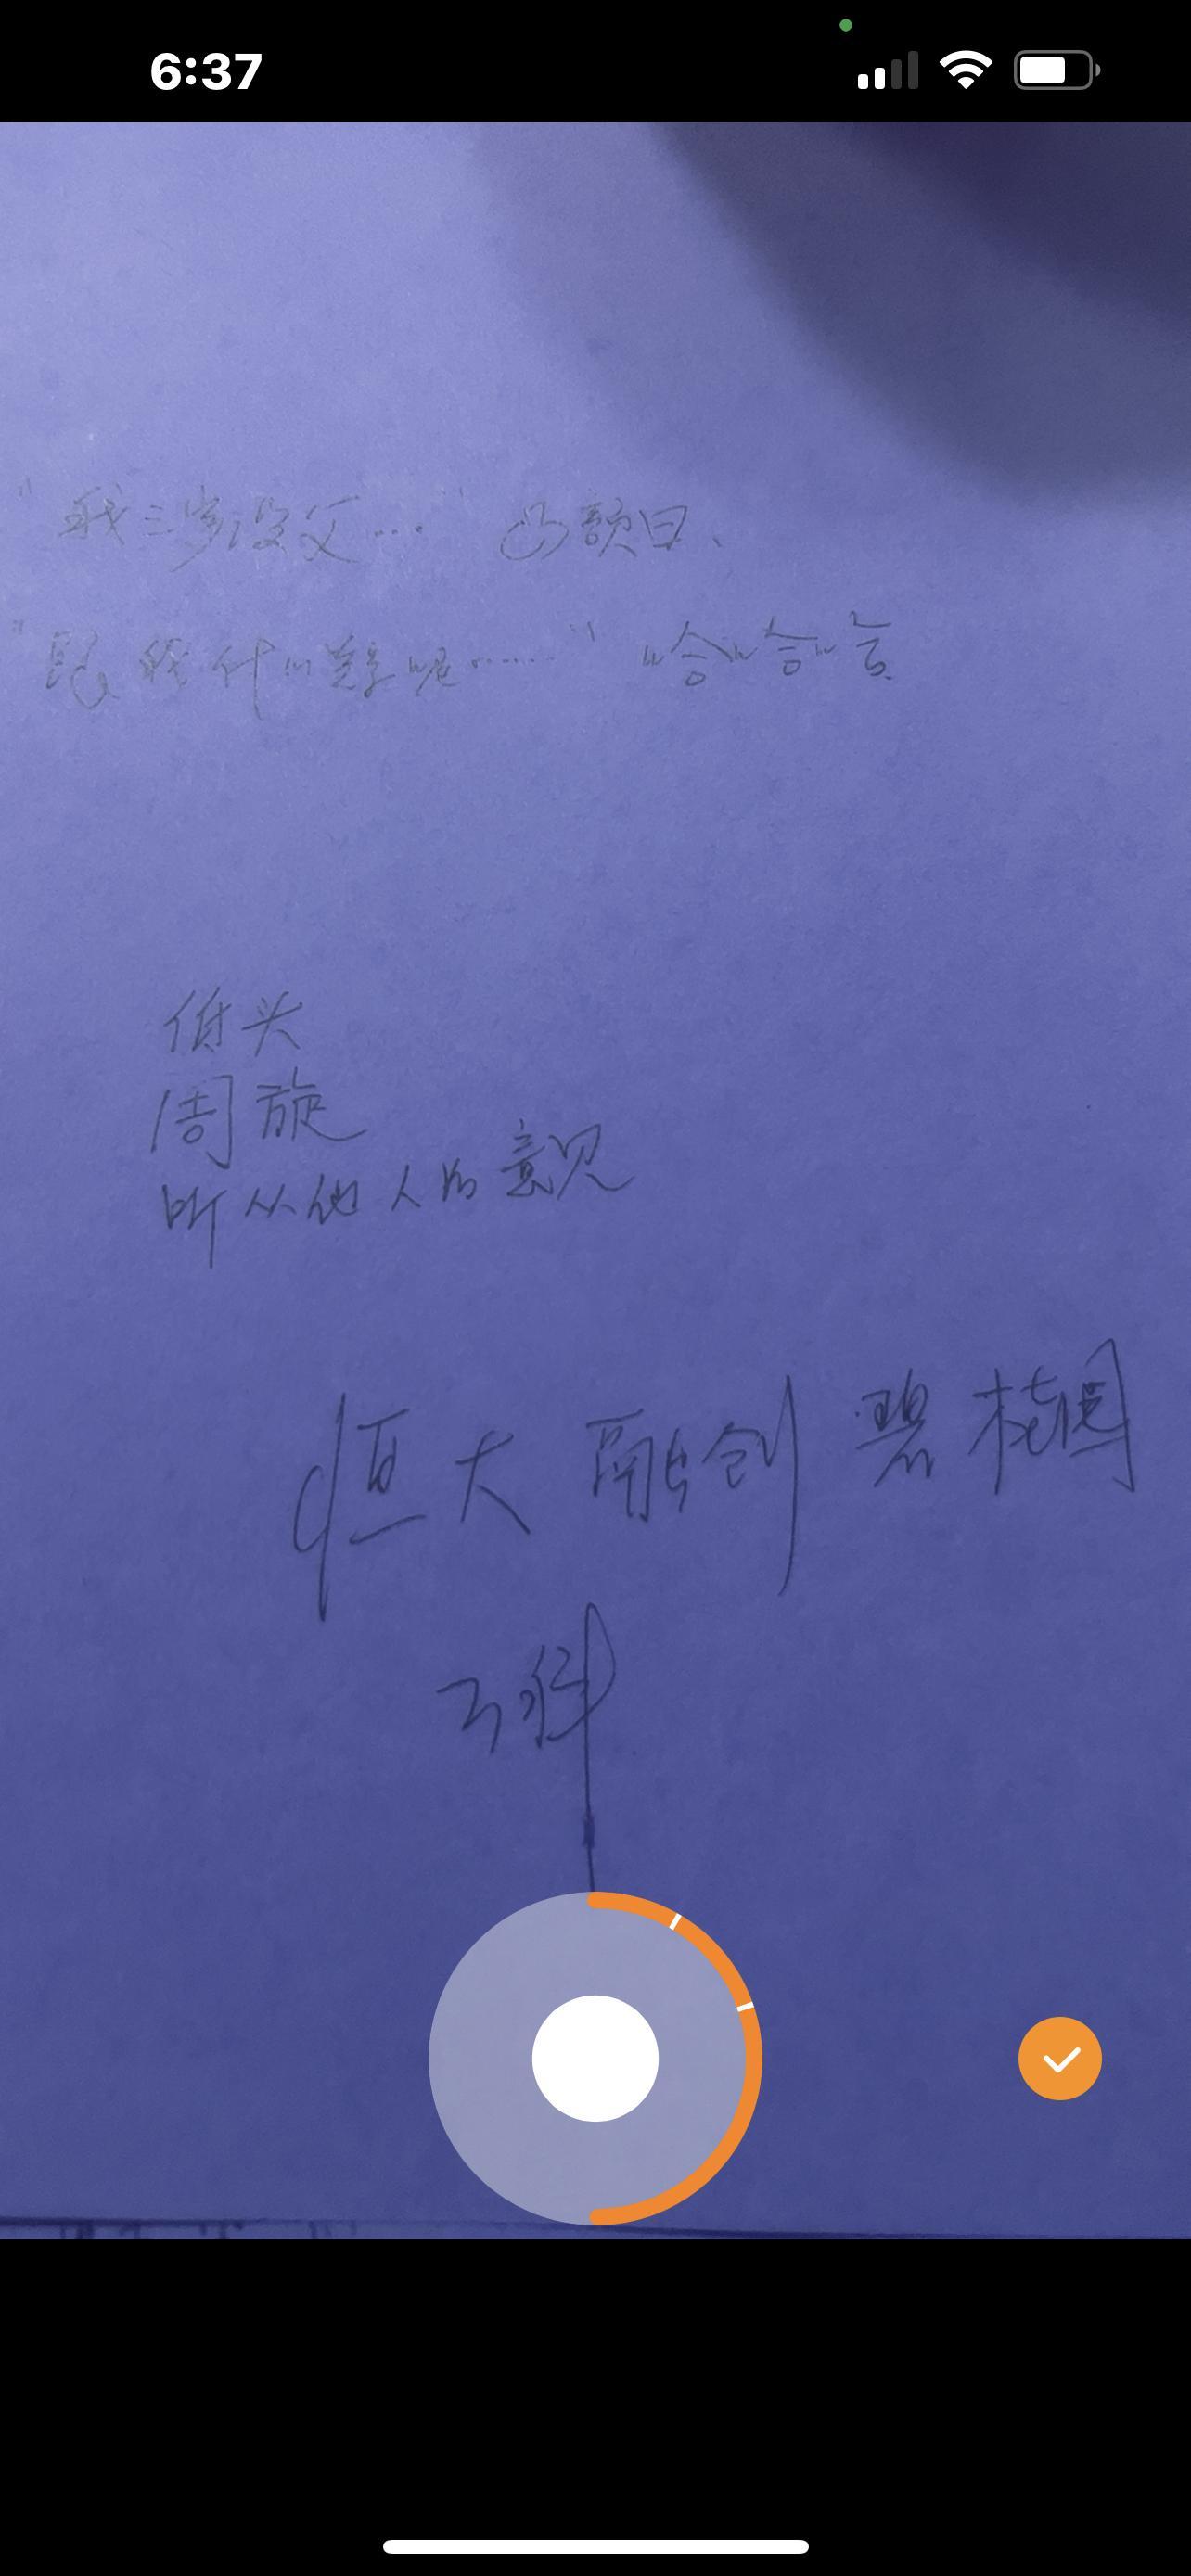 6:37
"我三岁没父… 凸额曰、
"跟我什么关系呢……" 哈哈哈
低头
周旋
听从他人的意见
恒大 融创 碧桂园
万科